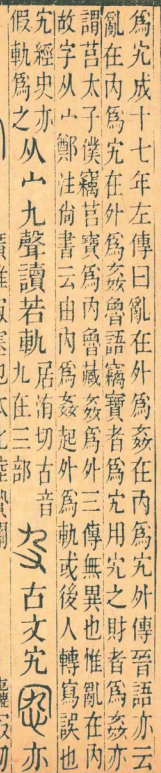 爲宄成十七年左傳曰亂在外爲姦在內爲宄外傳晉語亦云
亂在內爲宄在外爲姦魯語竊寶者爲宄用宄之財者爲姦亦
謂莒太子僕竊莒寶爲內魯藏姦爲外三傳無異也惟亂在內
故字从宀鄭注尙書云由內爲姦起外爲軌或後人轉寫誤也
宄經史亦
假軌爲之
从宀九聲讀若軌
居洧切古音
九在三部
古文宄
亦